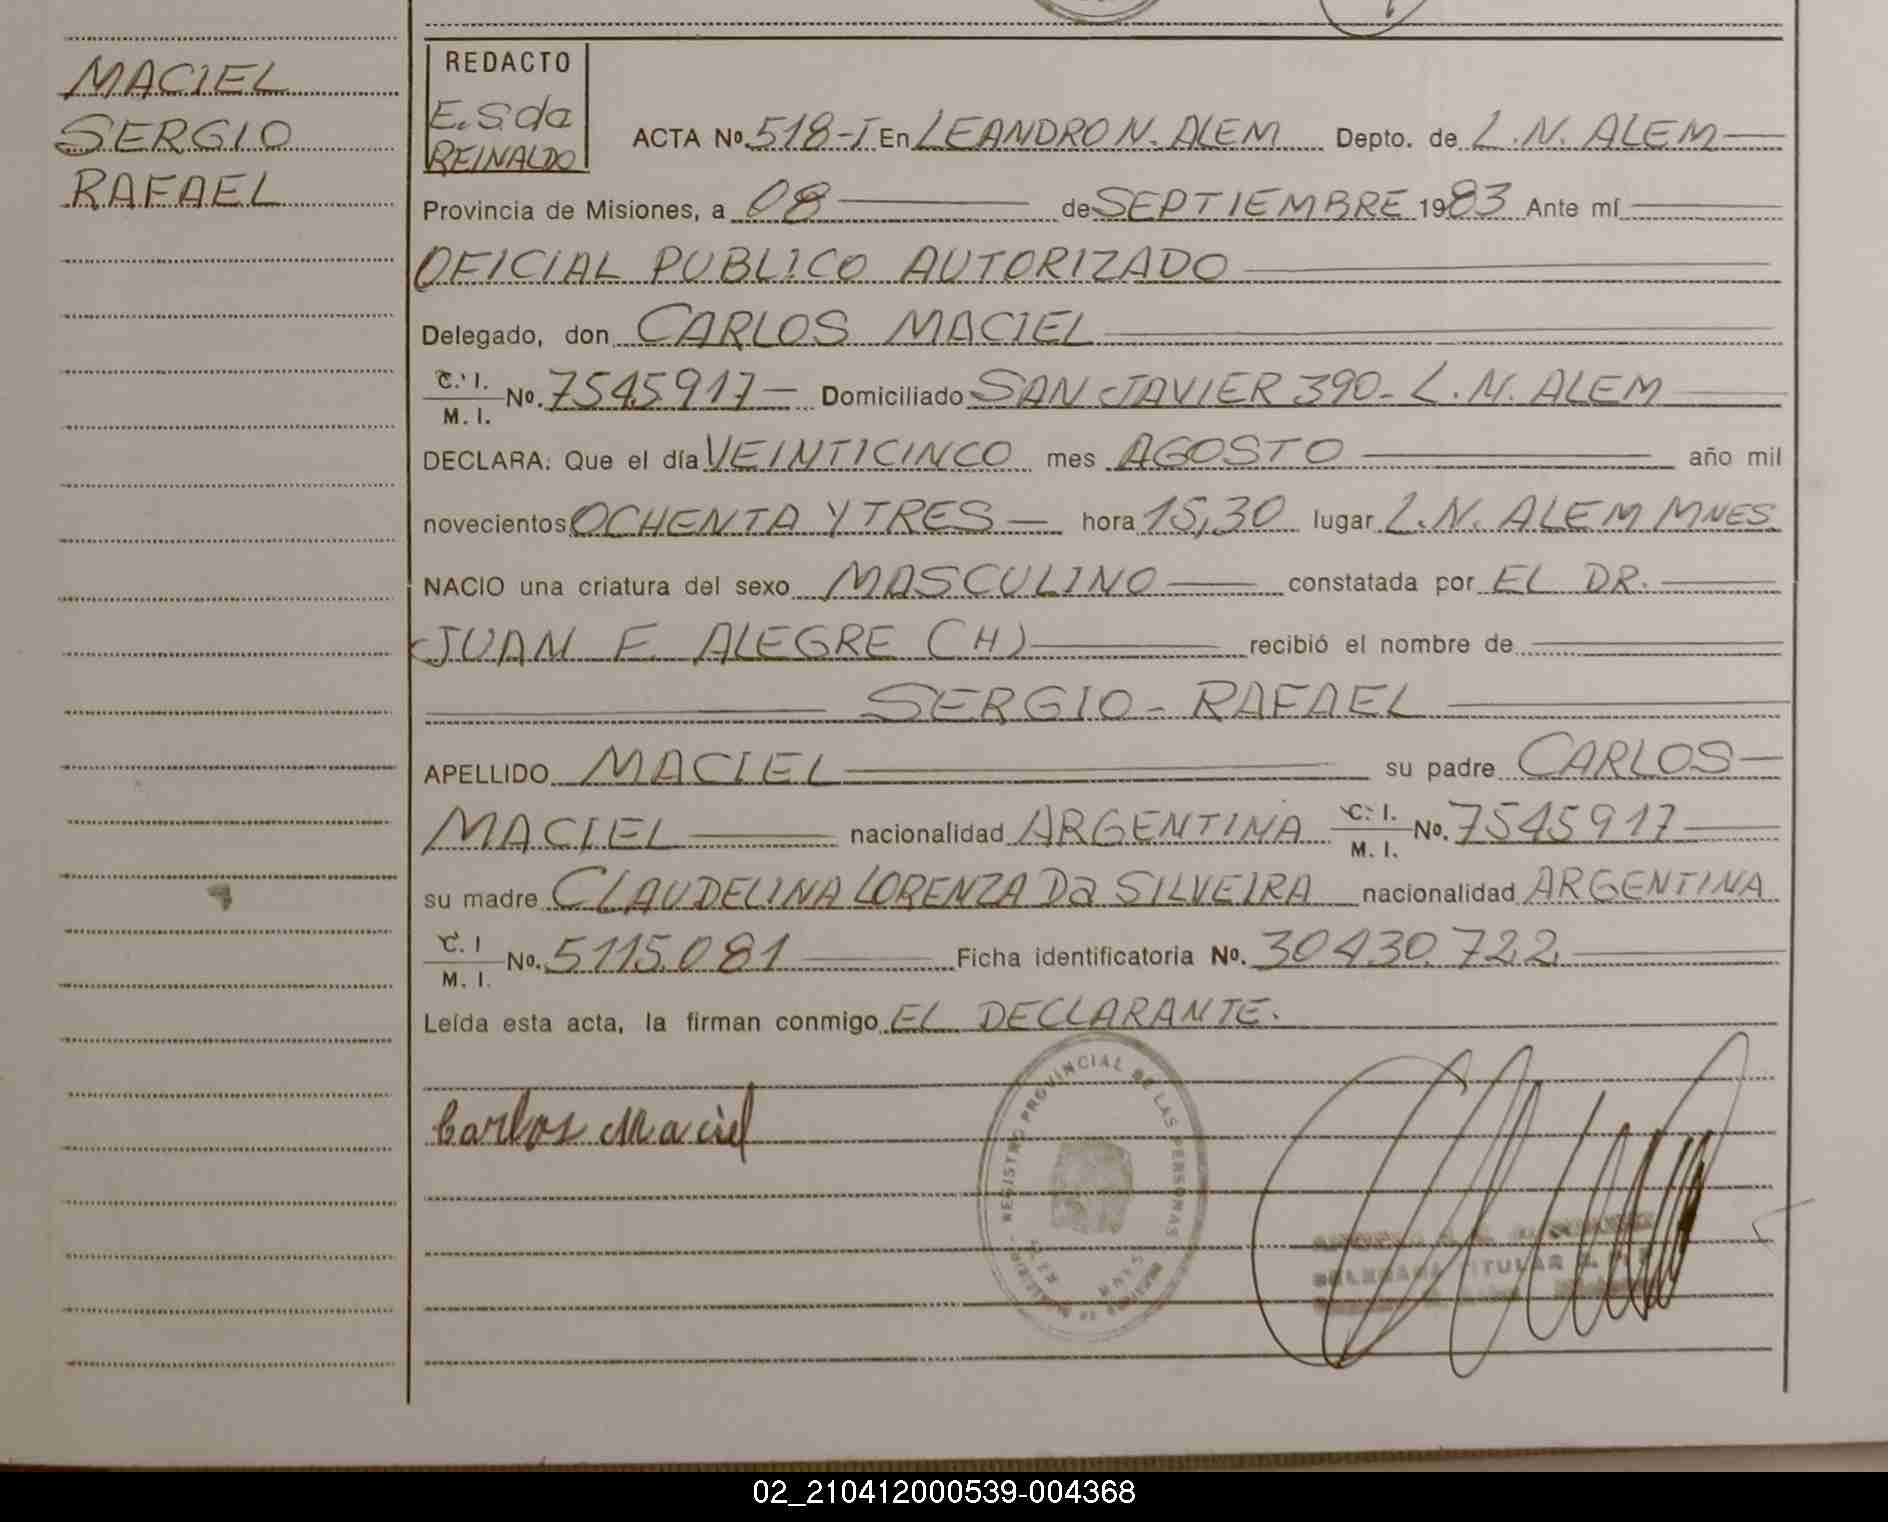 MACIEL
SERGIO
RAFAEL
REDACTO
E. S. da
REINALDO
ACTA Nº. 518-I En LEANDRO N. ALEM Depto. de L. N. ALEM
Provincia de Misiones, a 08 de SEPTIEMBRE 1983 Ante mí
OFICIAL PUBLICO AUTORIZADO
Delegado, don CARLOS MACIEL
C. I.
M. I. No. 7545917 Domiciliado SAN JAVIER 390- L. N. ALEM
DECLARA: Que el día VEINTICINCO mes AGOSTO año mil
novecientos OCHENTA Y TRES hora 15,30 lugar L. N. ALEM MNES.
NACIO una criatura del sexo MASCULINO constatada por EL DR.
JUAN F. ALEGRE (H) recibió el nombre de
SERGIO - RAFAEL
APELLIDO MACIEL su padre CARLOS
MACIEL nacionalidad ARGENTINA C. I.
M. I. No. 7545917
su madre CLAUDELINA LORENZA Da SILVEIRA nacionalidad ARGENTINA
C. I
M. I. No. 5.115.081 Ficha identificatoria No. 30.430.722
Leída esta acta, la firman conmigo EL DECLARANTE.
REGISTRO PROVINCIAL DE LAS PERSONAS
Carlos Maciel
TITULAR
02_210412000539-004368